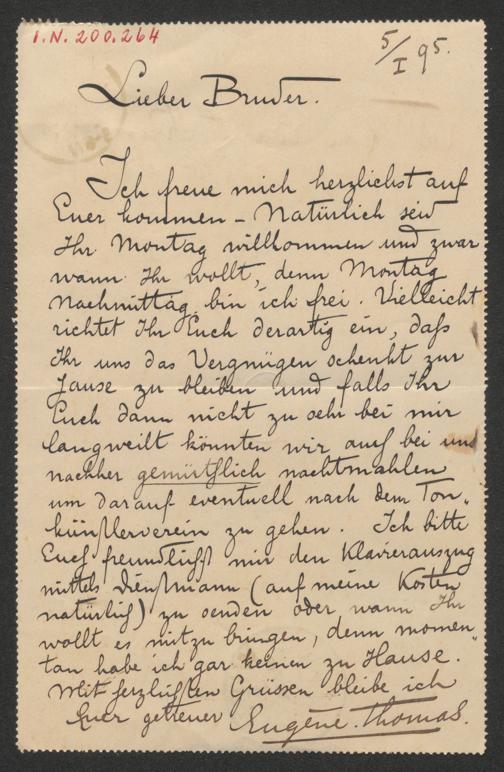 I.N. 200.264
5/I 95.
Lieber Bruder.
Ich freue mich herzlichst auf
Euer kommen – Natürlich seid
Ihr Montag willkommen und zwar
wann Ihr wollt, denn Montag
Nachmittag bin ich frei. Vielleicht
richtet Ihr Euch derartig ein, daß
Ihr uns das Vergnügen schenkt zur
Jause zu bleiben und falls Ihr
Euch dann nicht zu sehr bei mir
langweilt könnten wir auch bei uns
nachher gemüthlich nachtmahlen
um darauf eventuell nach dem Ton„
künstlerverein zu gehen. Ich bitte
Euch freundlichst mir den Klavierauszug
mittels Dienstmann (auf meine Kosten
natürlich) zu senden oder wann Ihr
wollt es mitzubringen, denn momen„
tan habe ich gar keinen zu Hause.
Mit herzlichsten Grüssen bleibe ich
Euer getreuer Eugène Thomas.